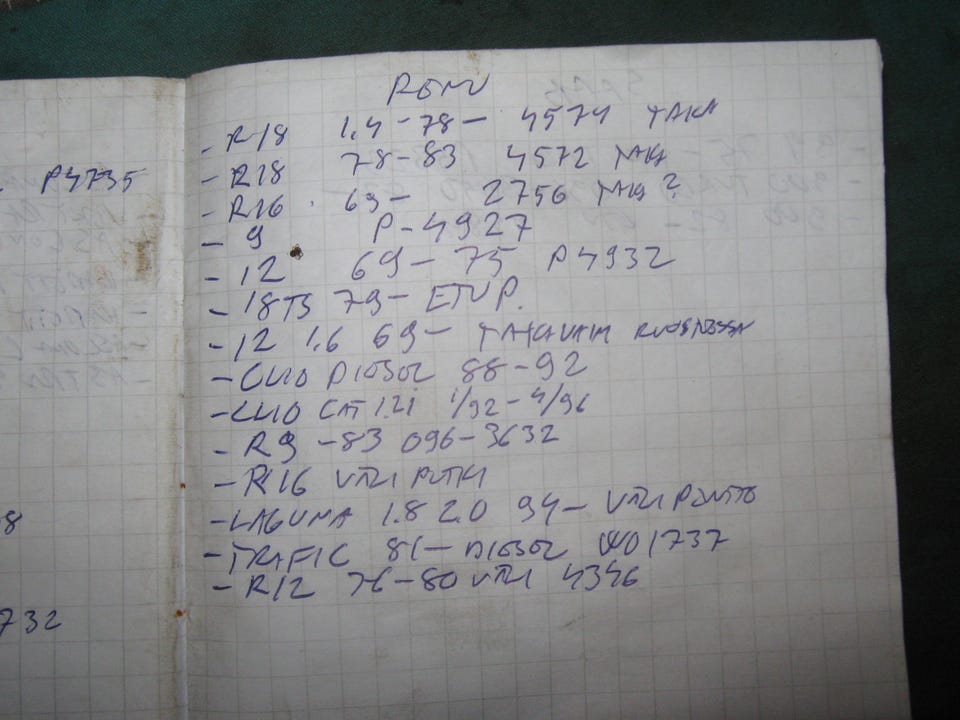 RENU
- R18 1.4 - 78 - 4574 TAKA
- R18 78-83 4572 TAKA
- R16 . 69 - 2756 TAKA ?
- 9 P-4927
- 12 69 - 75 P4932
- 18TS 79 - ETUP.
- 12 1.6 69 - TAKAVAIM
- CLIO DIESEL 88-92
- CLIO CAT 1.2i 1/92 - 4/96
- R9 -83 096-3632
- R16 VÄLIPUTKI
- LAGUNA 1.8 2.0 94 - VÄLIPÖNTTÖ
- TRAFIC 81 - DIESEL 1737
- R12 76-80 VÄLI 4346
P4735
8
732